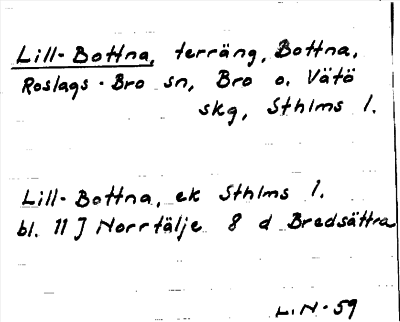 Lill-Bottna, terräng, Bottna,
Roslags-Bro sn, Bro o. Vätö
skg, Sthlms l.
Lill-Bottna, ek Sthlms l.
bl. 11 J Norrtälje 8 d Bredsättra
L.N-59